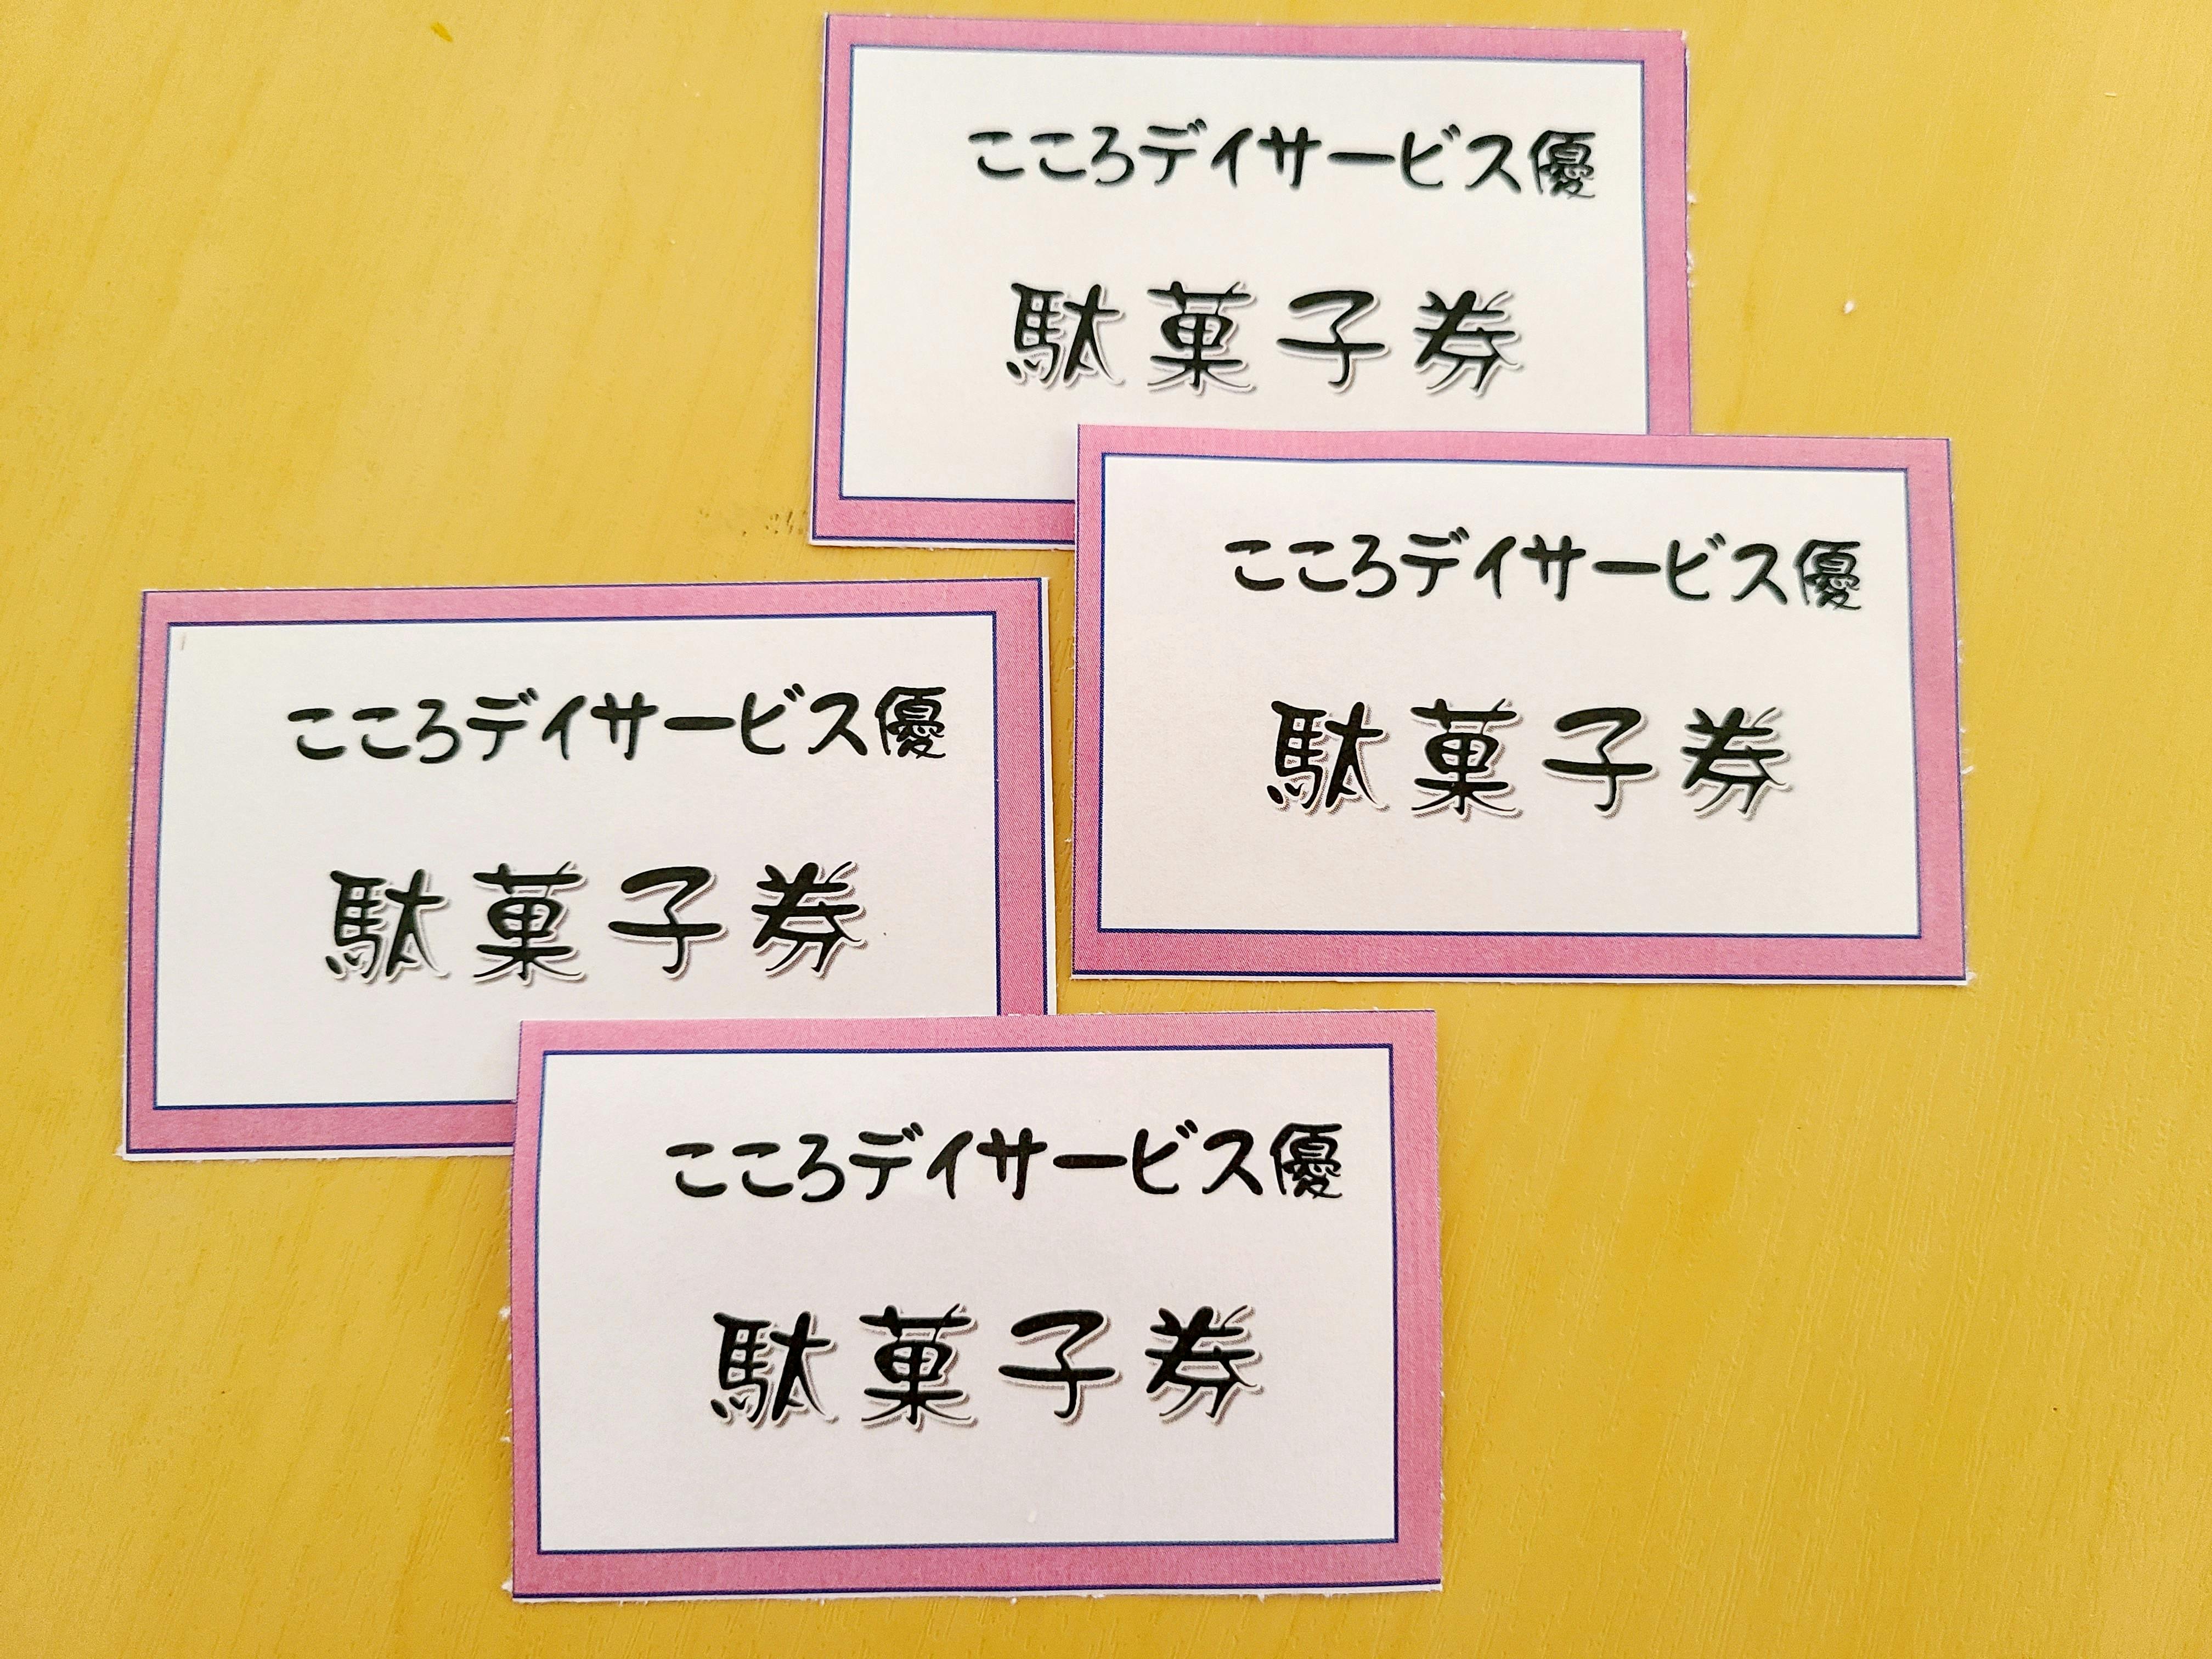 こころデイサービス優
駄菓子券
こころデイサービス優
駄菓子券
こころデイサービス優
駄菓子券
こころデイサービス優
駄菓子券